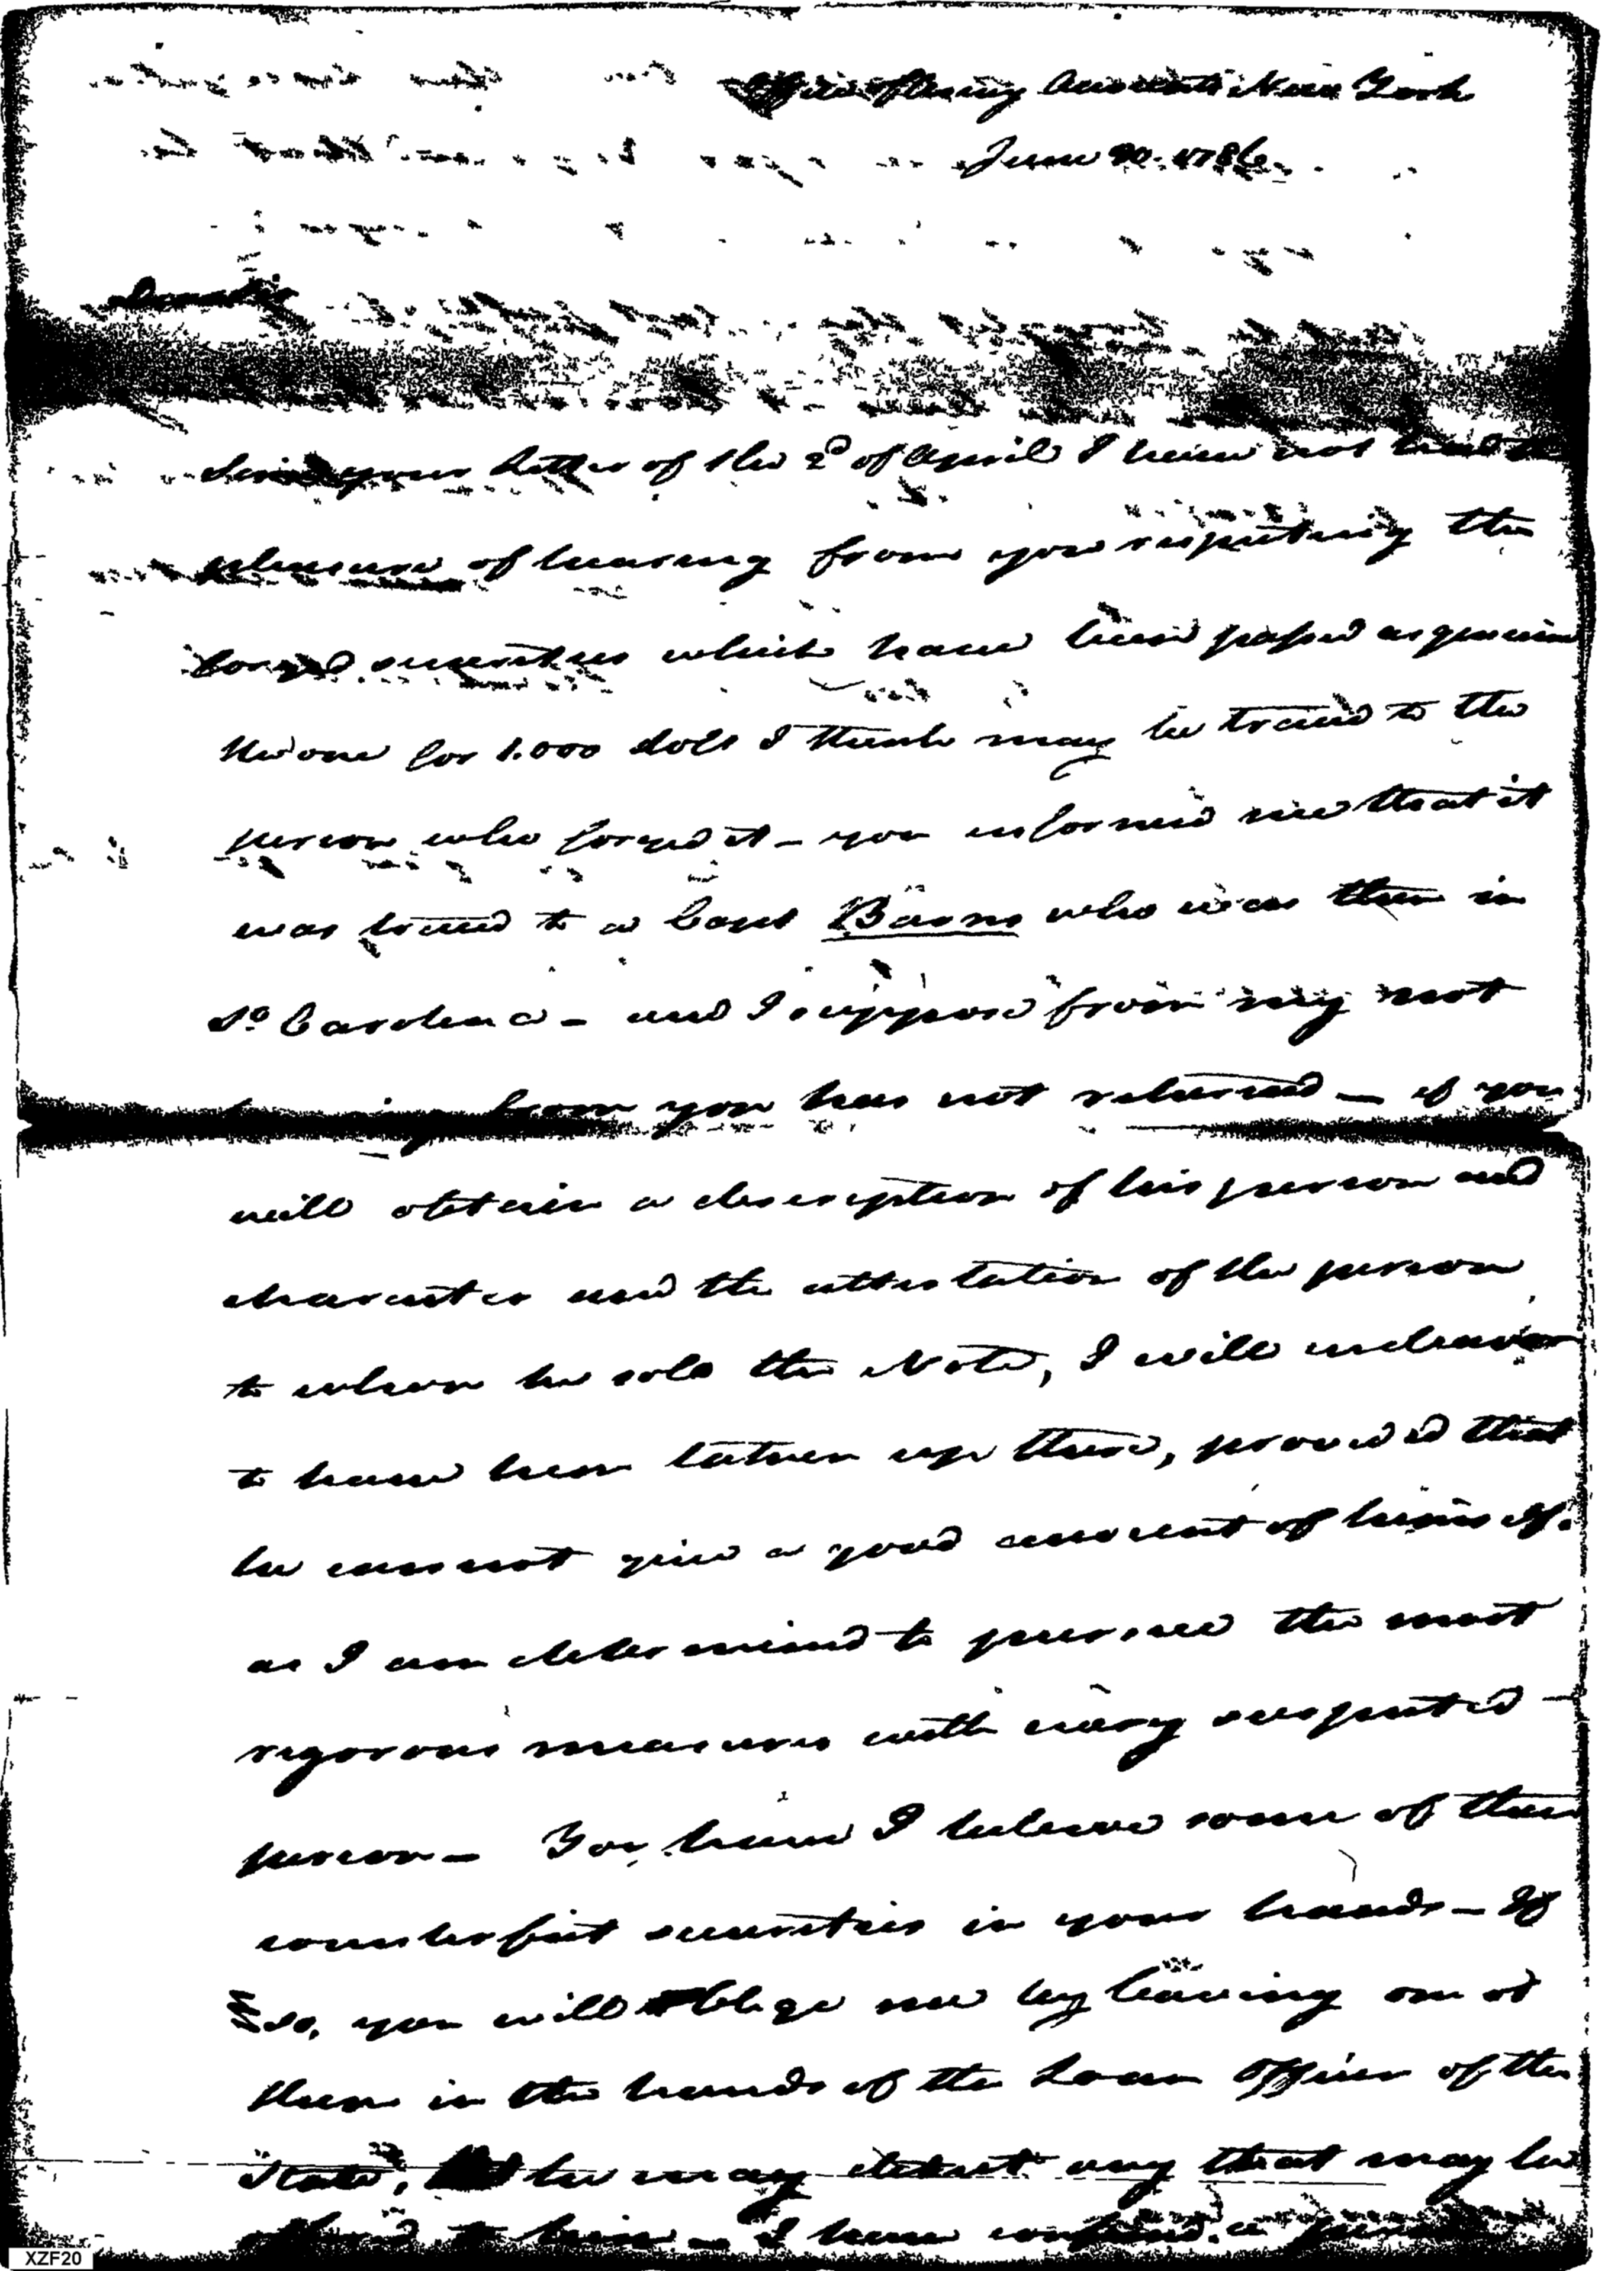 Office of Army Accounts New York
June 1786.
Since your letter of the 2d of April I have not had the
pleasure of hearing from you respecting the
forged securities which have been passed as genuine
the one for 1.000 dolls I think may be traced to the
person who forged it - you informed me that it
was traced to a Capt Barns who was then in
So Carolina - and I suppose from my not
from you has not returned - if you
will obtain a description of his person and
character and the attestation of the person
to whom he sold the Note, I will endeavor
to have him taken up there, provided that
he cannot give a good account of himself.
as I am determined to pursue the most
rigorous measures with every suspected
person - You have I beleive some of these
counterfeit securities in your hands - If
so, you will oblige me by leaving one of
them in the hands of the Loan Officer of the
State, he may detect any that may be
to him - I have confined a
XZF20